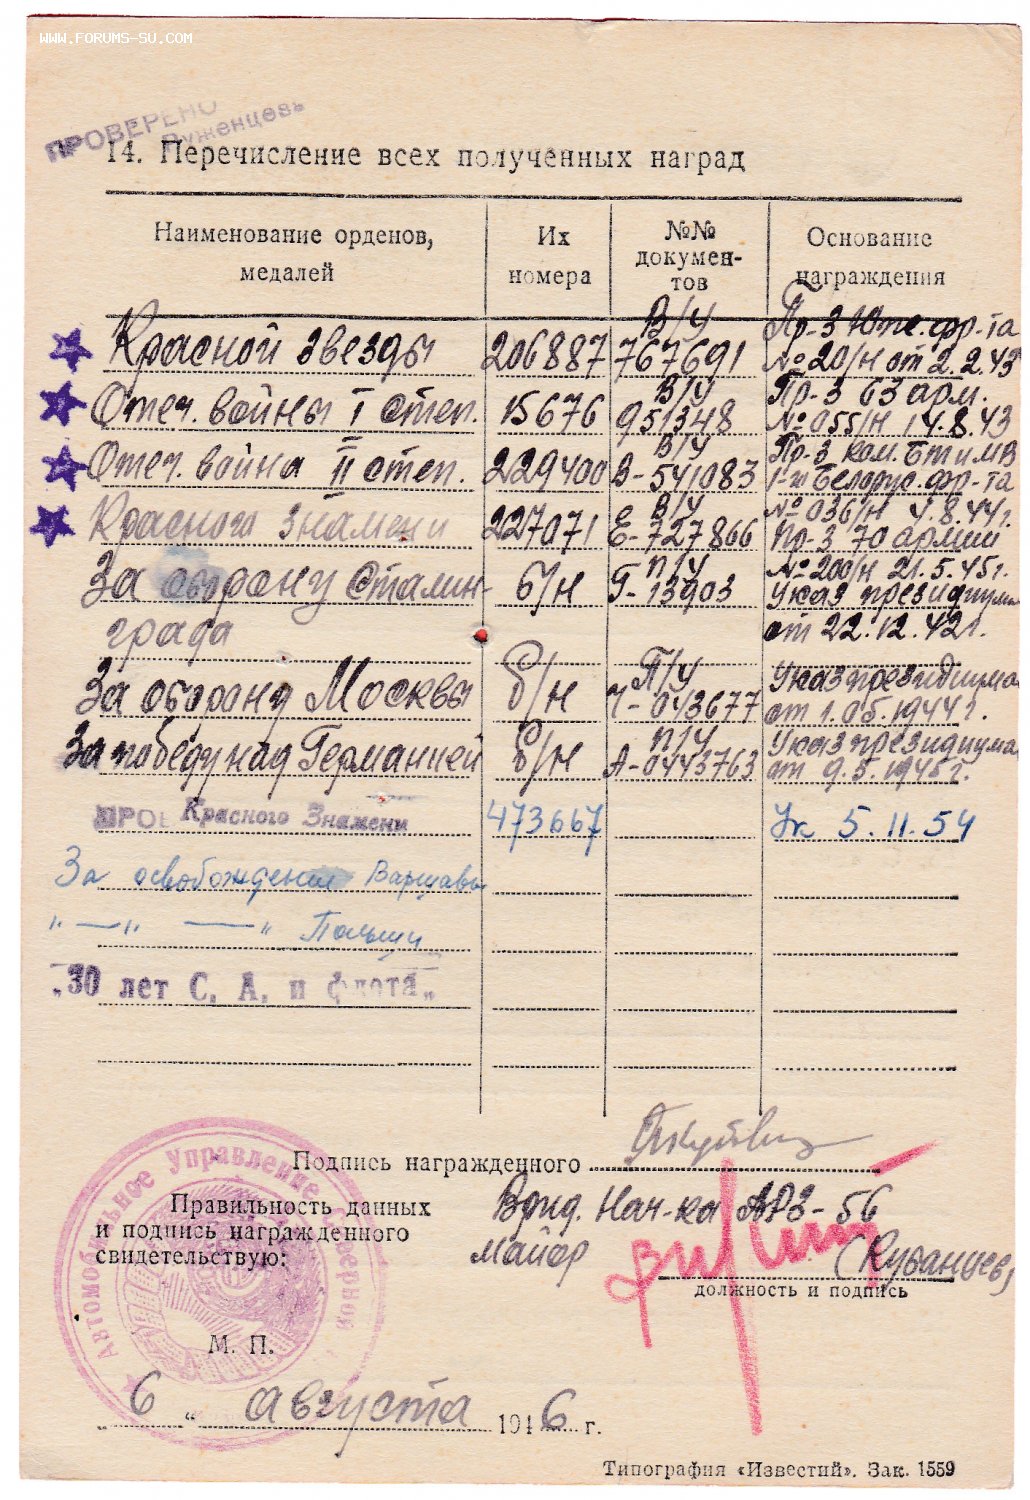 WWW.FORUMS-SU.COM
ПРОВЕРЕНО
14. Перечисление всех полученных наград
Наименование орденов, медалей
Их номера
№№ документов
Основание награждения
Красной звезды 206887 В/У 767691 Пр-з Юж. фр-та № 20/н от 2.2.43
Отеч. войны I степ. 15676 В/У 951348 Пр-з 63 арм. № 055/н 14.8.43
Отеч. война II степ. 229400 В/У В-541083 Пр-з ком. БТ и МВ 1-го Белорус. фр-та № 036/н 4.8.44г.
Красного Знамени 227071 В/У Е-727866 Пр-з 70 армии № 200/н 21.5.45г.
За оборону Сталин- б/н П/у Г-13903 Указ президиума
града от 22.12.42г.
За оборону Москвы б/н П/у Ч-043677 Указ президиума от 1.05.1944г.
За победу над Германией б/н П/у А-0443763 Указ президиума от 9.5.1945г.
Красного Знамени 473667 Ук 5.11.54
За освобождение Варшавы
" — " — " Польши
"30 лет С. А. и флота"
Подпись награжденного
Правильность данных
и подпись награжденного
свидетельствую:
Врид. Нач-ка АРЗ-56
майор (Кубанцев)
должность и подпись
Автомобильное Управление Северной
М. П.
6 " августа 1946 г.
Типография «Известий». Зак. 1559